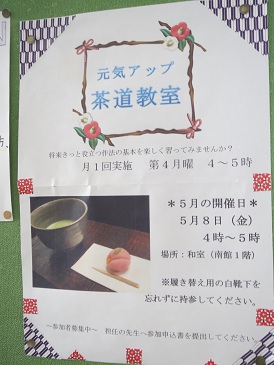 元気アップ
茶道教室
将来きっと役立つ作法の基本を楽しく習ってみませんか？
月1回実施　第4月曜　4～5時
＊5月の開催日＊
5月8日（金）
4時～5時
場所：和室（南館1階）
※履き替え用の白靴下を
忘れずに持参してください。
～参加者募集中～　担任の先生へ参加申込書を提出してください。